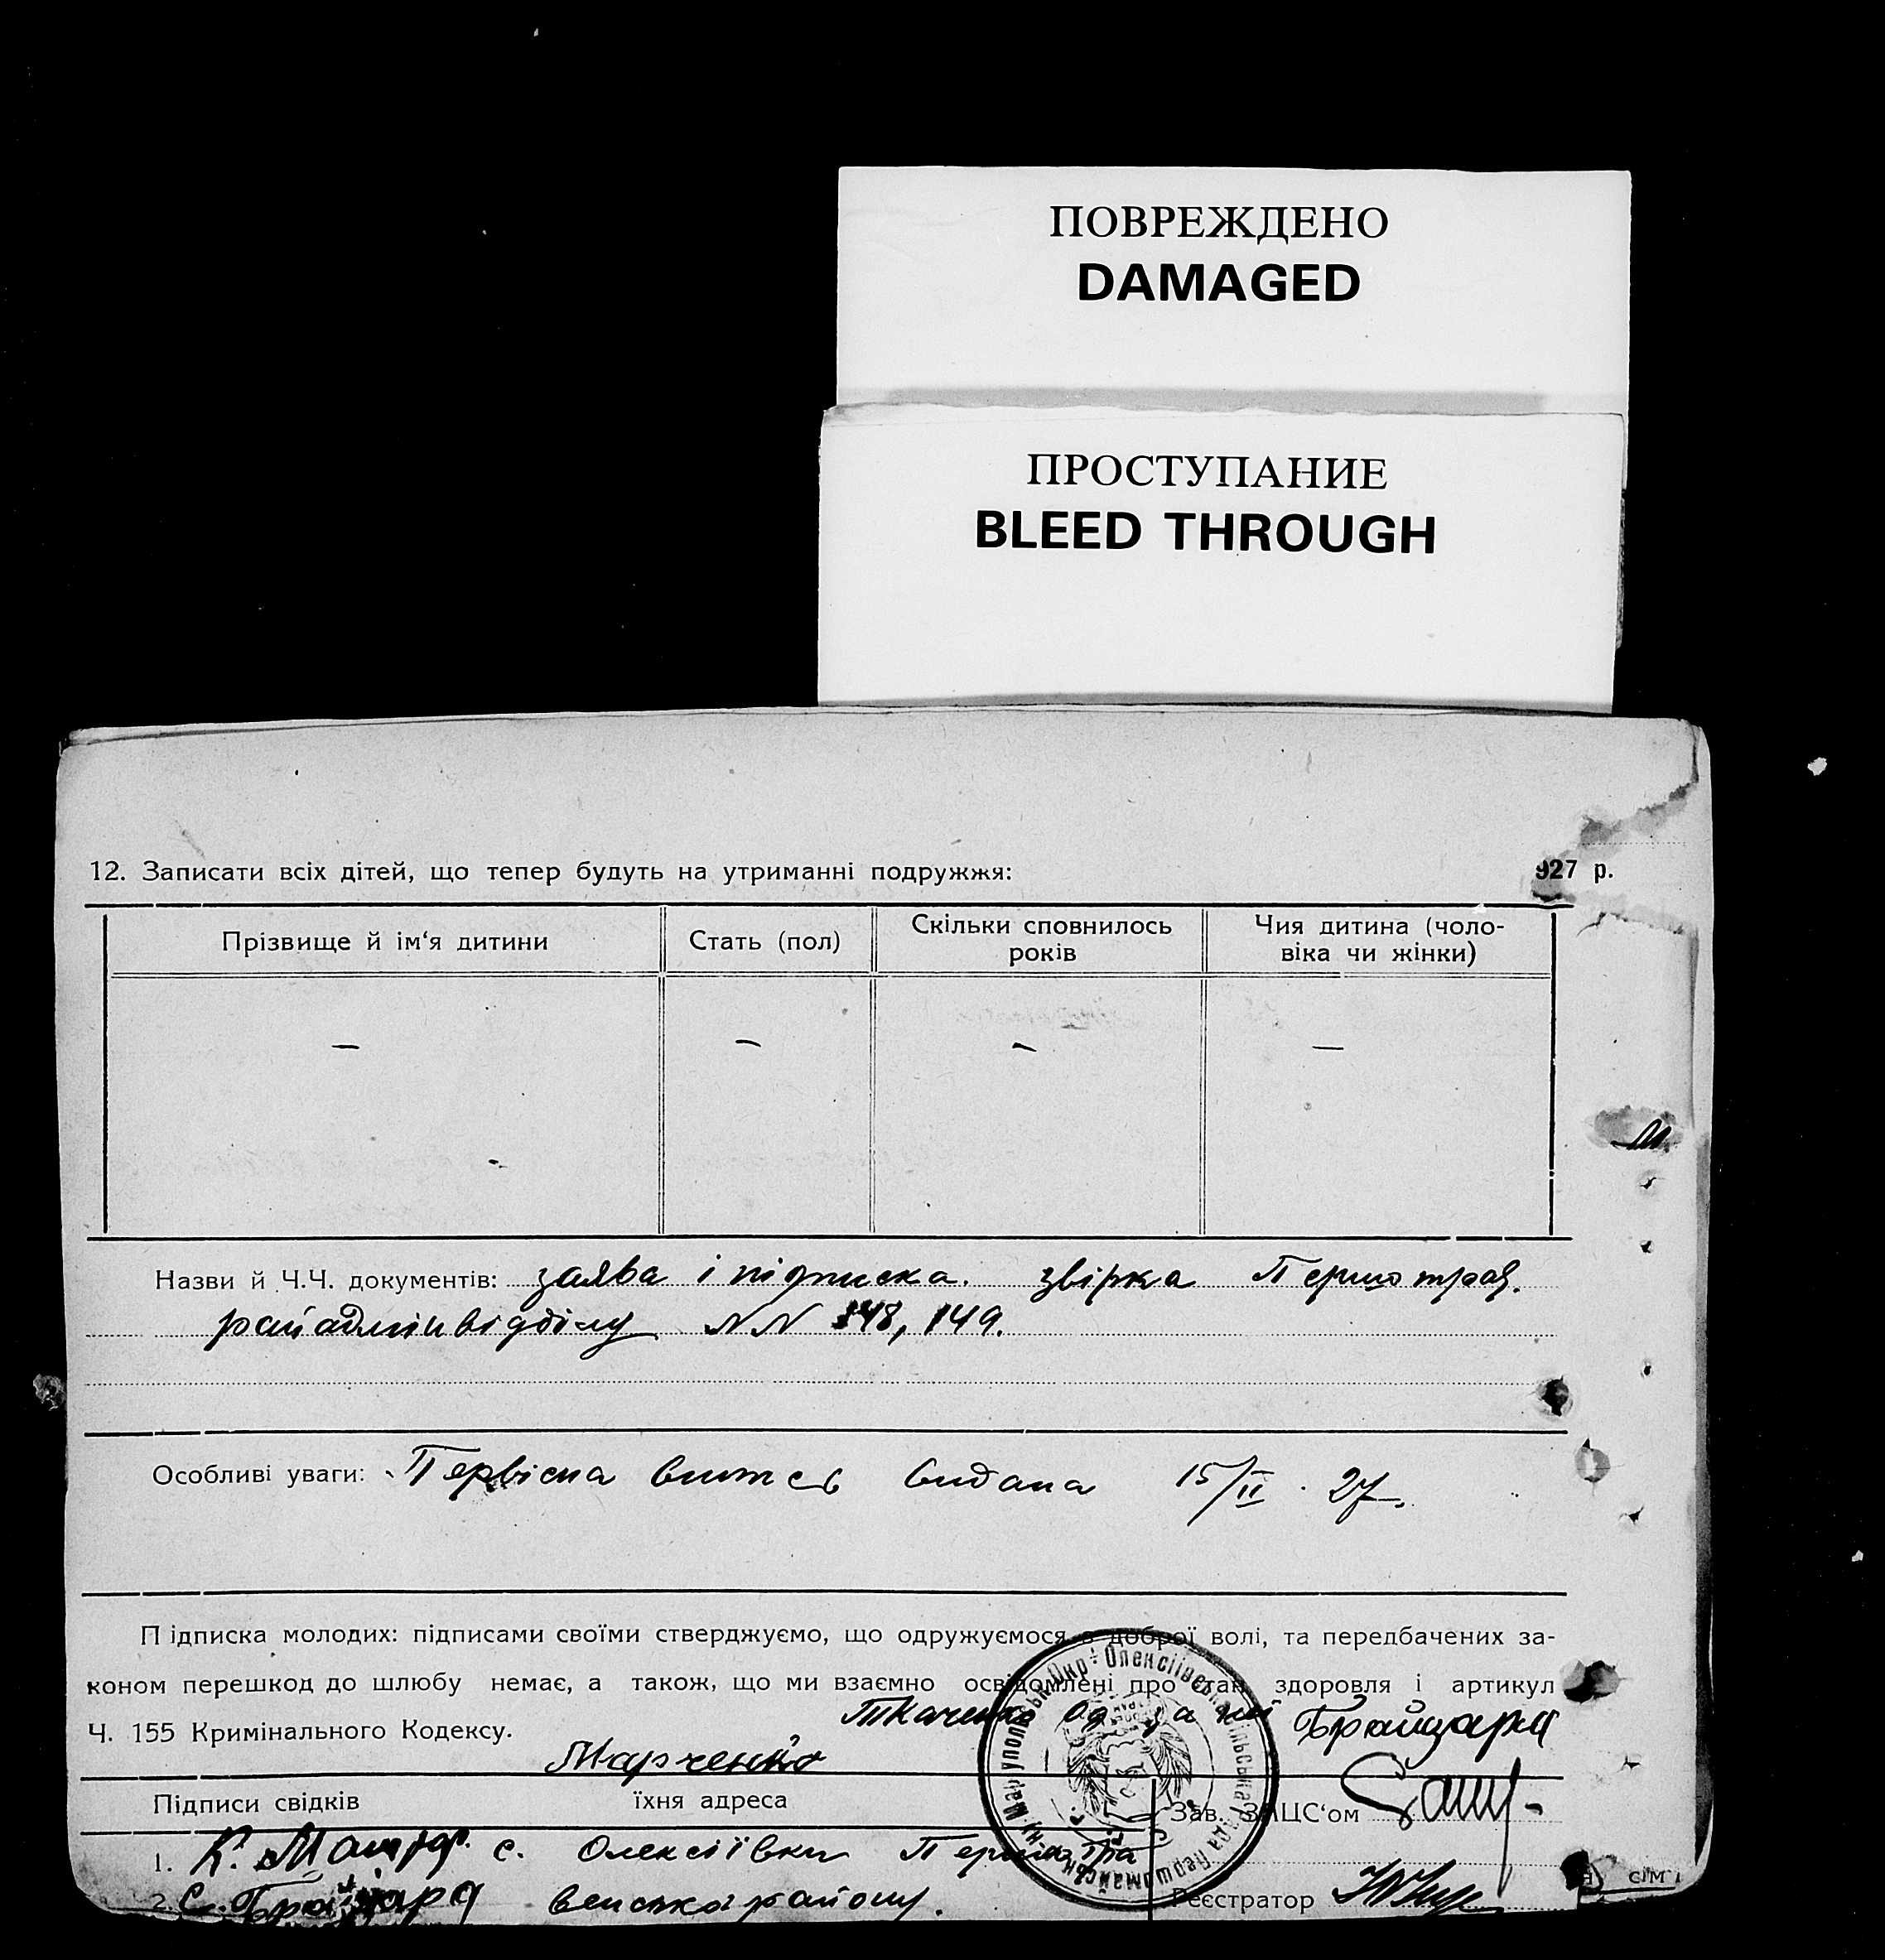 ПОВРЕЖДЕНО
DAMAGED
ПРОСТУПАНИЕ
BLEED THROUGH
12. Записати всіх дітей, що тепер будуть на утриманні подружжя: 927 р.
Прізвище й ім‘я дитини Стать (пол) Скільки сповнилось років Чия дитина (чоло-віка чи жінки)
— — — —
Назви й Ч.Ч. документів: заява і підписка. звірка Першотрав.
райадмінвідділу NN 148, 149.
Особливі уваги: Первісна витяг видана 15/II. 27.
Підписка молодих: підписами своїми стверджуємо, що одружуємося з доброї волі, та передбачених за-
коном перешкод до шлюбу немає, а також, що ми взаємно освідомлені про стан здоровля і артикул
Ч. 155 Кримінального Кодексу. Ткаченко
Марченко
Підписи свідків їхня адреса Зав. ЗАЦС‘ом
1. К. с. Олексіївки Першотра
2. С. венська району. Реєстратор
Олексіївська сільська рада Першомайськ. р-ну Маріупольськ. Окр.